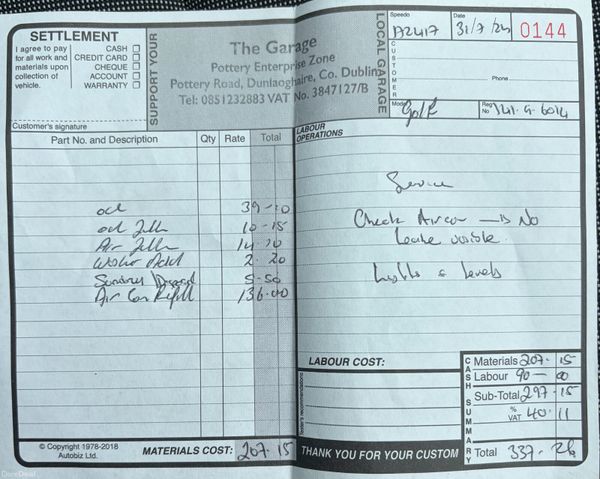 SETTLEMENT
I agree to pay for all work and materials upon collection of vehicle.
CASH
CREDIT CARD
CHEQUE
ACCOUNT
WARRANTY
Customer's signature
SUPPORT YOUR
LOCAL GARAGE
The Garage
Pottery Enterprise Zone
Pottery Road, Dunlaoghaire, Co. Dublin
Tel: 0851232883 VAT No. 3847127/B
Speedo
Date 31/7/24
0144
CUSTOMER
Phone
Model Golf
Reg No 141-G-6014
Part No. and Description Qty Rate Total
oil 39-10
oil filter 10-15
Air filter 14 10
Washer Add 2. 20
Sundries / Disposal 5-50
Air Con Refill 136-00
MATERIALS COST: 207.15
© Copyright 1978-2018
Autobiz Ltd.
LABOUR OPERATIONS
Service
Check Aircon — is No
leaks visible.
Lights & levels
LABOUR COST:
THANK YOU FOR YOUR CUSTOM
CASH SUMMARY
Materials 207. 15
Labour 90 — 00
Sub-Total 297 . 15
% VAT 40. 11
Total 337. 26
DoneDeal